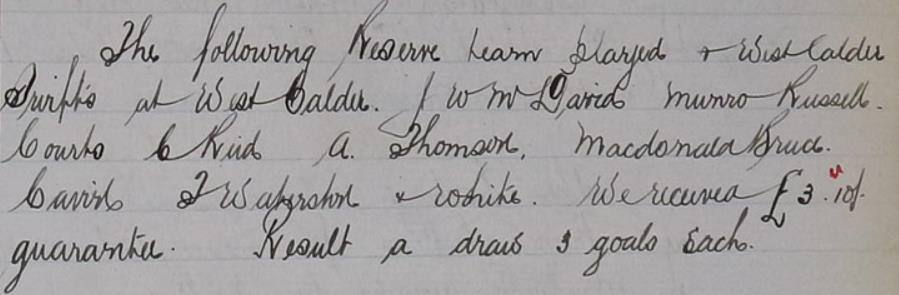 The following Reserve team played v West Calder
Swifts at West Calder. J W McDavid Munro Russell.
Couts C Reid A. Thomson, Macdonald Bruce.
T Waterston & White. We received £3.10/-
guarantee. Result a draw 3 goals Each.